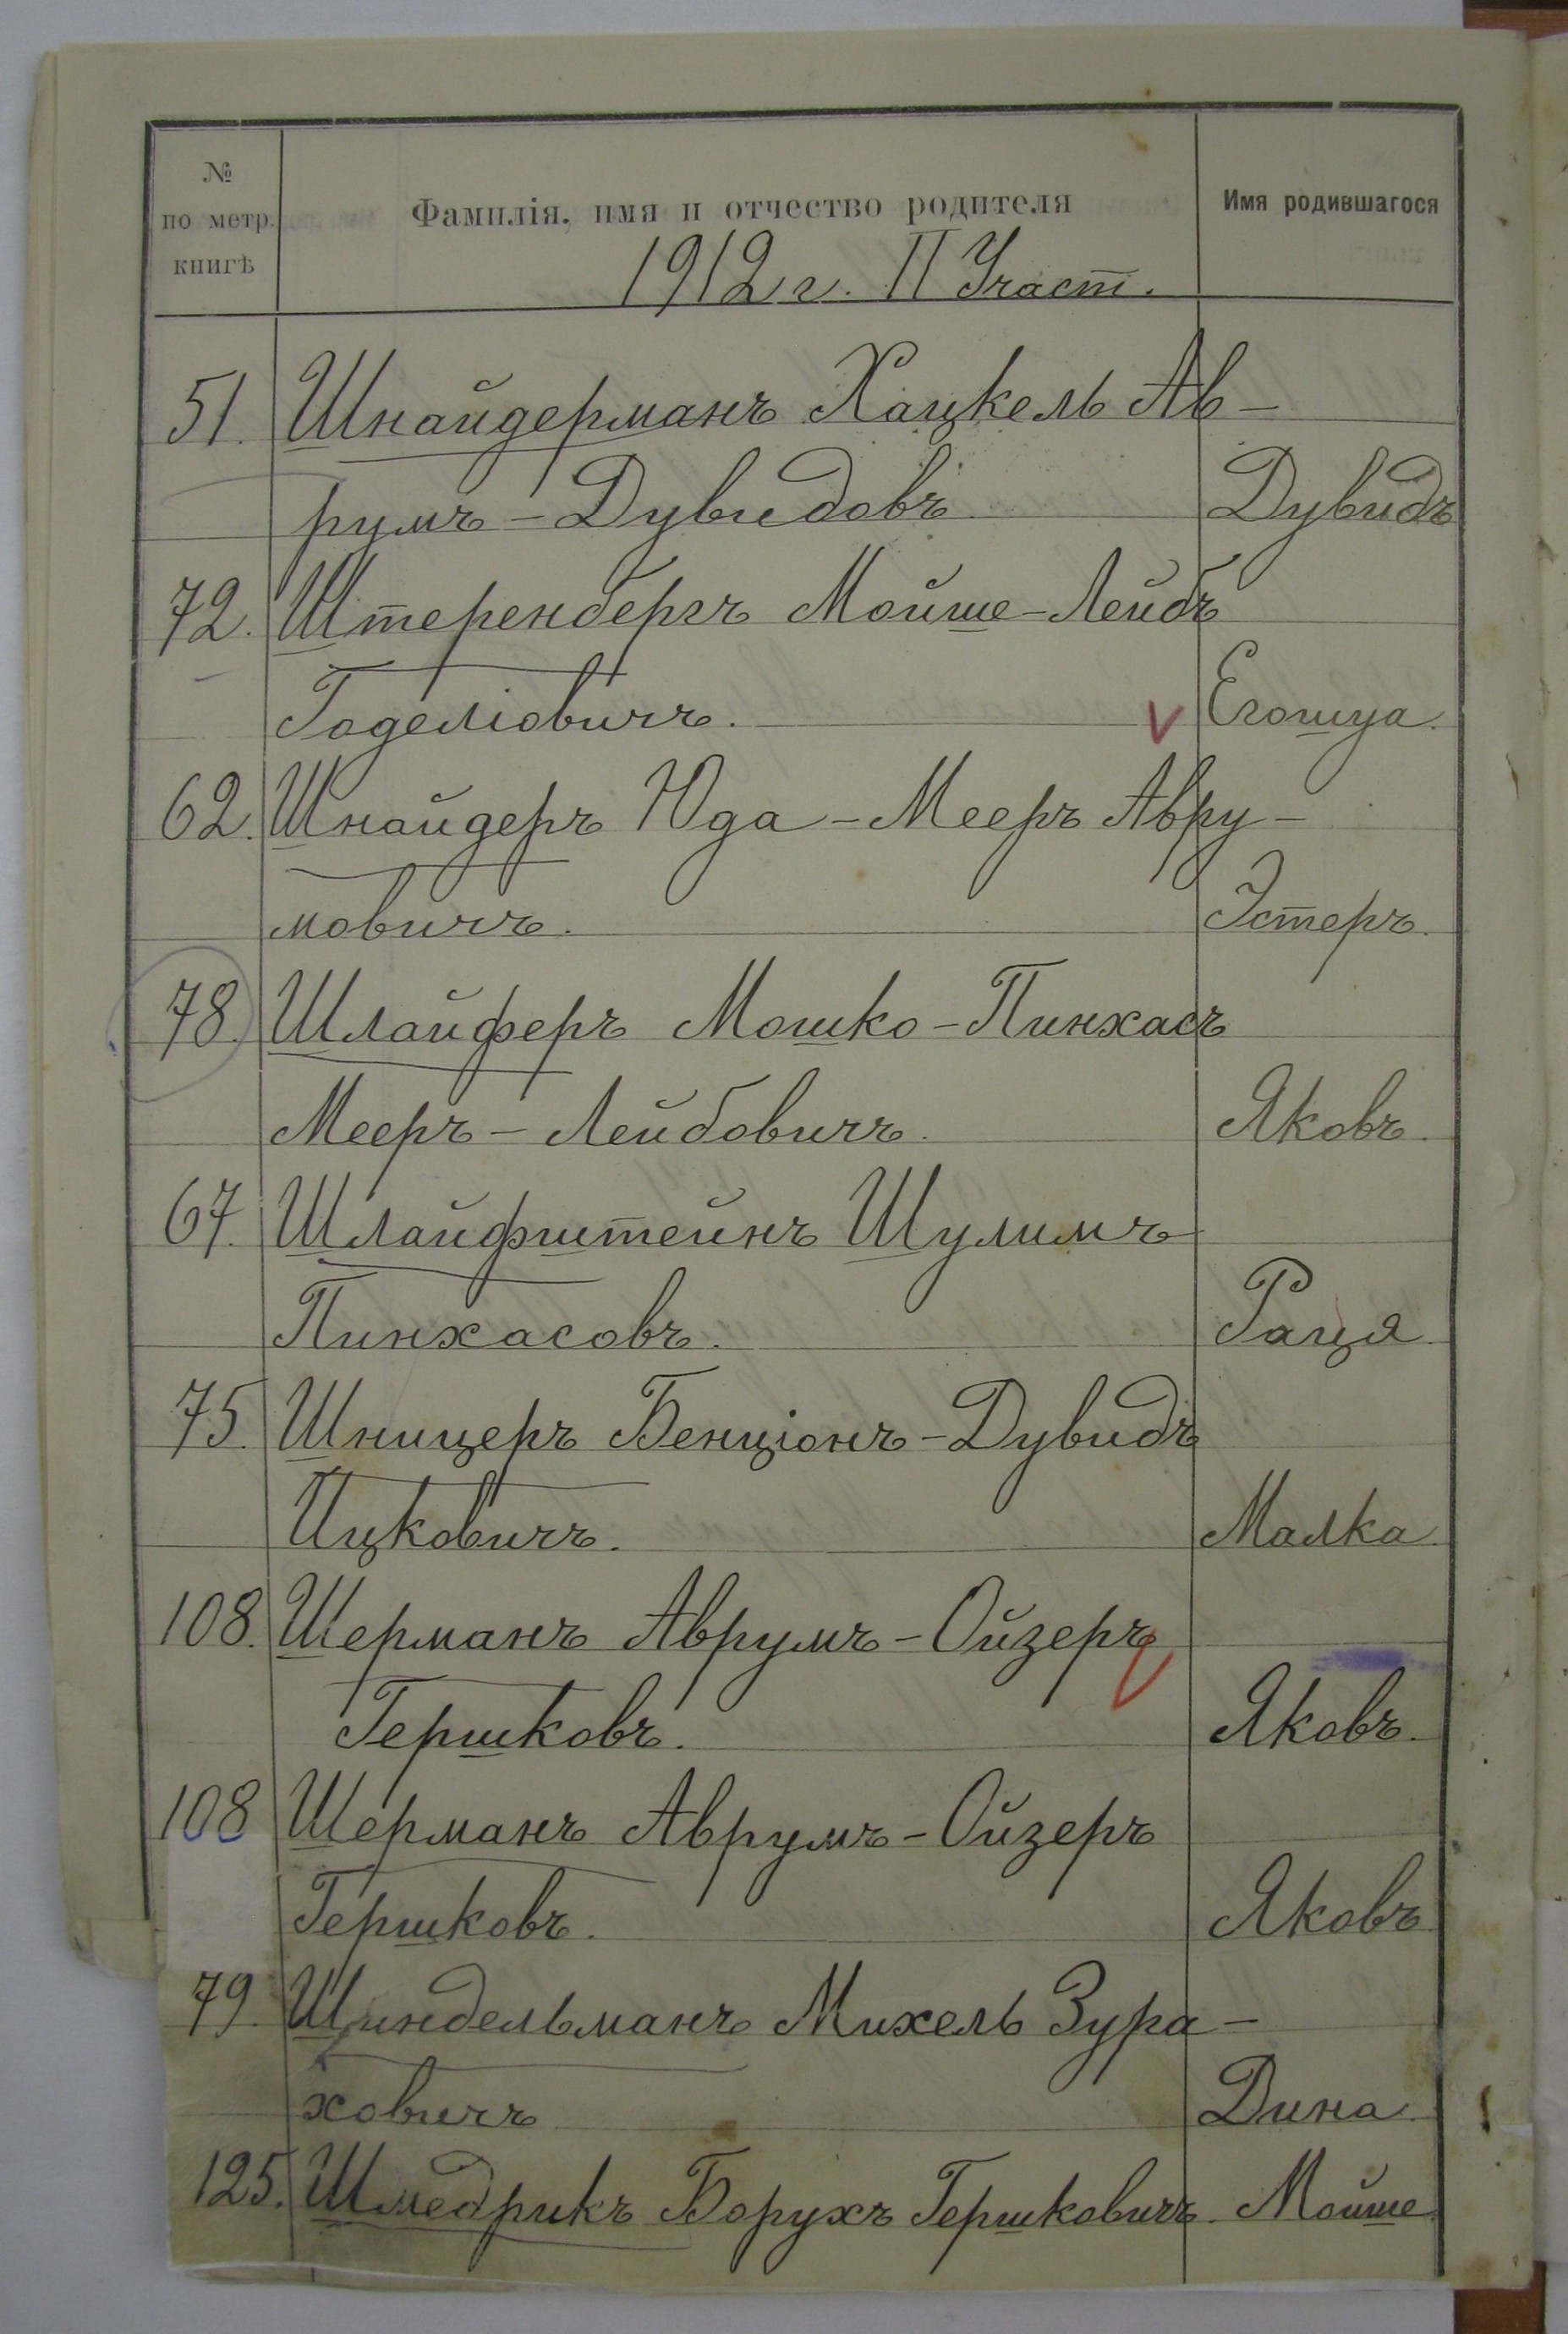 №
по метр.
книгѣ
Фамилія, имя и отчество родителя
Имя родившагося
1912 г. II Участ.
51. Шнайдерманъ Хацкель Ав-
румъ-Дувидовъ Дувидъ
72. Штеренбергъ Мойше-Лейбъ
Годеліовичъ. Егошуа.
62. Шнайдеръ Юда-Мееръ Авру-
мовичъ. Эстеръ.
78. Шлайферъ Мошко-Пинхасъ
Мееръ-Лейбовичъ. Яковъ.
67. Шлайфштейнъ Шулимъ
Пинхасовъ. Раця
75. Шницеръ Бенціонъ-Дувидъ
Ицковичъ. Малка
108. Шерманъ Аврумъ-Ойзеръ
Гершковъ. Яковъ.
108 Шерманъ Аврумъ-Ойзеръ
Гершковъ. Яковъ
79. Шиндельманъ Михель Зура-
ховичъ Дина.
125. Шмедрикъ Борухъ Гершковичъ. Мойше